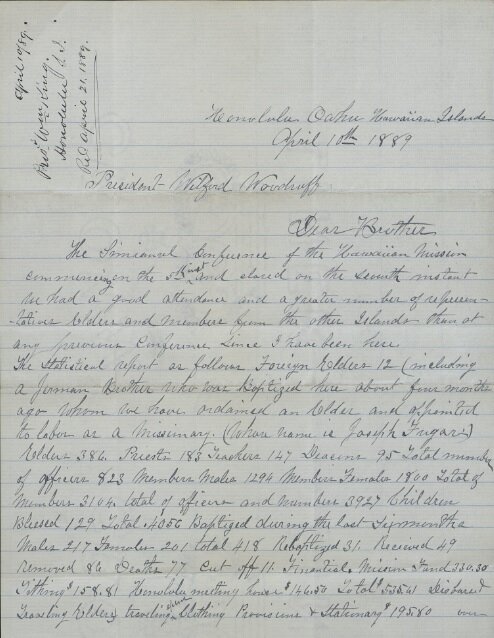 April 10/89.
Pres. Wm. King.
Honolulu S. I.
Rec April 21. 1889.
Honolulu Oahu Hawaiian Islands
April 10th 1889
President Wilford Woodruff
Dear Brother
The Simianual Conference of the Hawaiian Mission
commencing on the 5th inst and closed on the seventh instant
We had a good attendance and a greater number of represen-
tatives Elders and members from the other Islands than at
any previous Conference Since I have been here
The Statistical report as follows Foreign Elders 12 (including
a German Brother who was Baptized here about four months
ago whom we have ordained an Elder and appointed
to labor as a Missinary. (Whose name is Joseph
Elders 386 Priests 183 Teachers 147 Deacons 95 Total number
of officers 823 Members Males 1294 Members Females 1800 Total of
Members 3104 total of officers and members 3927 Children
Blessed 129 Total 4056 Baptized during the last Six months
Males 217 Females 201 total 418 Rebaptized 31. Recieved 49
removed 86 Deaths 77 Cut off 11. Financial, Mission Fund 230.30
Tithing $158.81 Honolulu meeting house $146.50 Total $535.61 Disbursed
Traveling Elders, traveling Clothing Provisions & Stationary $195.80 over